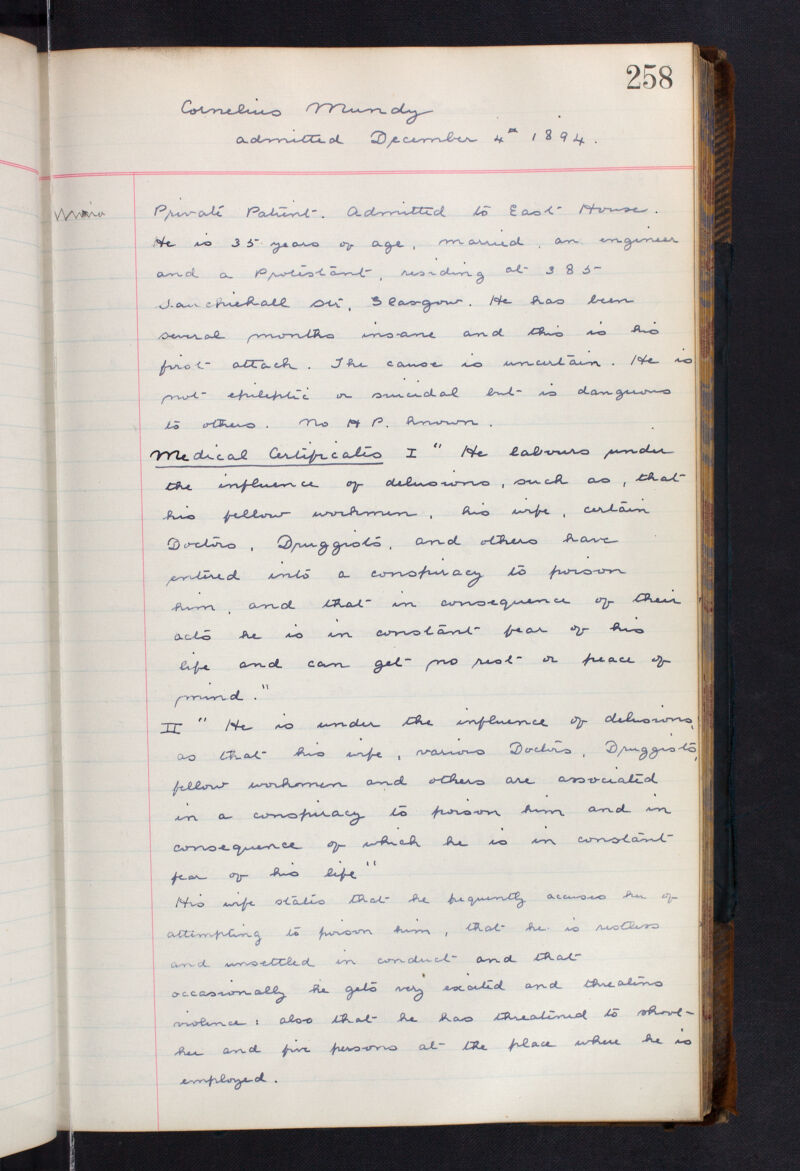 258
Cornelius Mundy
admitted December 4th 1894.
Private Patient. Admitted to East House.
He is 35 years of age, married, an engineer
and a Protestant, residing at 385
Sauchiehall St, Glasgow. He has been
several months insane and this is his
first attack. The cause is uncertain. He is
not epileptic or suicidal but is dangerous
to others. No H P. known.
Medical Certificates I " He labours under
the influence of delusions, such as, that
his fellow workmen, his wife, certain
Doctors, Druggists, and others have
entered into a conspiracy to poison
him, and that in consequence of their
acts he is in constant fear of his
life and can get no rest or peace of
mind."
II " He is under the influence of delusions,
as that his wife, various Doctors, Druggists,
fellow workmen and others are associated
in a conspiracy to poison him and in
consequence of which he is in constant
fear of his life"
His wife states that he frequently accuses her of
attempting to poison him, that he is restless
and unsettled in conduct and that
occasionally he gets very excited and threatens
violence: also that he has threatened to shoot
her and five persons at the place where he is
employed.